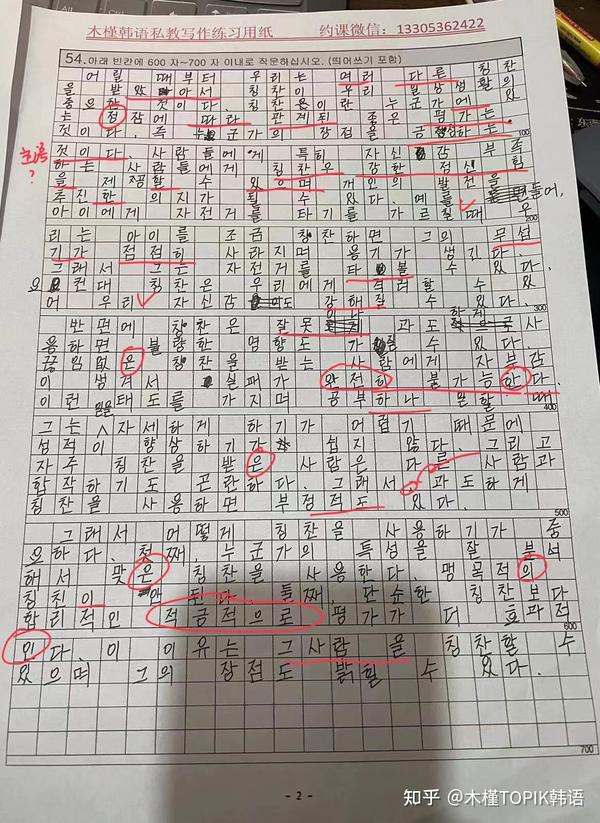 木槿韩语私教写作练习用纸 约课微信：13305362422
54. 아래 빈칸에 600 자~700 자 이내로 작문하십시오. (띄어쓰기 포함)
어릴 때부터 우리는 여러 다른 칭찬
을 받았아서 칭찬이 우리 일상생활의
중요한 것이다. 칭찬은이란 누군가에 있
는 점잠에 따라 관계되 좋은 평가는
것이다. 즉 누군가의 장점을 긍정하는
100
主语？
것이다. 사람들에게 특히 자신감 부족
하는 사람들에게 칭찬우 강한 정신 힘
을 제공할 수 있으며 개인의 발전을
추진한 의지가 될 수 있다. 예를 들어,
아이에게 자전거를 타기를 가르칠때 우
200
리는 아이를 조금 칭찬하면 그의 무섭
기가 점점히 사라지며 용기가 생긴다.
그래서 그는 자전거를 타볼 수 있다.
요컨대 칭찬은 우리에게 격려할 수 있
어 우리 자신감도 강해질 수 있다.
300
반면에 칭찬은 잘못 이나 과도하게 사
용하면 불량한 영향도 가질 수 있다.
끊임없은 칭찬을 받는 사람에게 자부감
이 생겨서 실패가 완전히 불가능한다.
이런 태도를 가지며 공부하나 일할 때
400
그는 일을 자세하게 하기가 어렵기 때문에
성적이 향상하기가 쉽지 않다. 그리고
자주 칭찬을 받은 사람은 다른 사람과
합작하기도 곤란하다. 그래서 과도하게
칭찬을 사용하면 부정적도 있다.
500
그래서 어떻게 칭찬을 사용하기가 중
요하다. 첫째, 누군가의 특성을 잘 분석
해서 맞은 칭찬을 사용한다. 맹목적의
칭친이 안 된다. 둘째, 단순한 칭찬보다
합리적인 적금적으로 평가가 더 효과적
600
인다. 이 이유는 그 사람을 칭찬할 수
있으며 그의 장점도 밝힐 수 있다.
700
- 2 -
知乎 @木槿TOPIK韩语